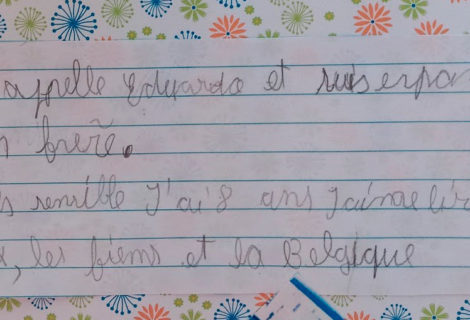 appelle Eduardo et suis espa
n frere.
s sensible J'ai 8 ans J'aime lir
, les fiems et la Belgique